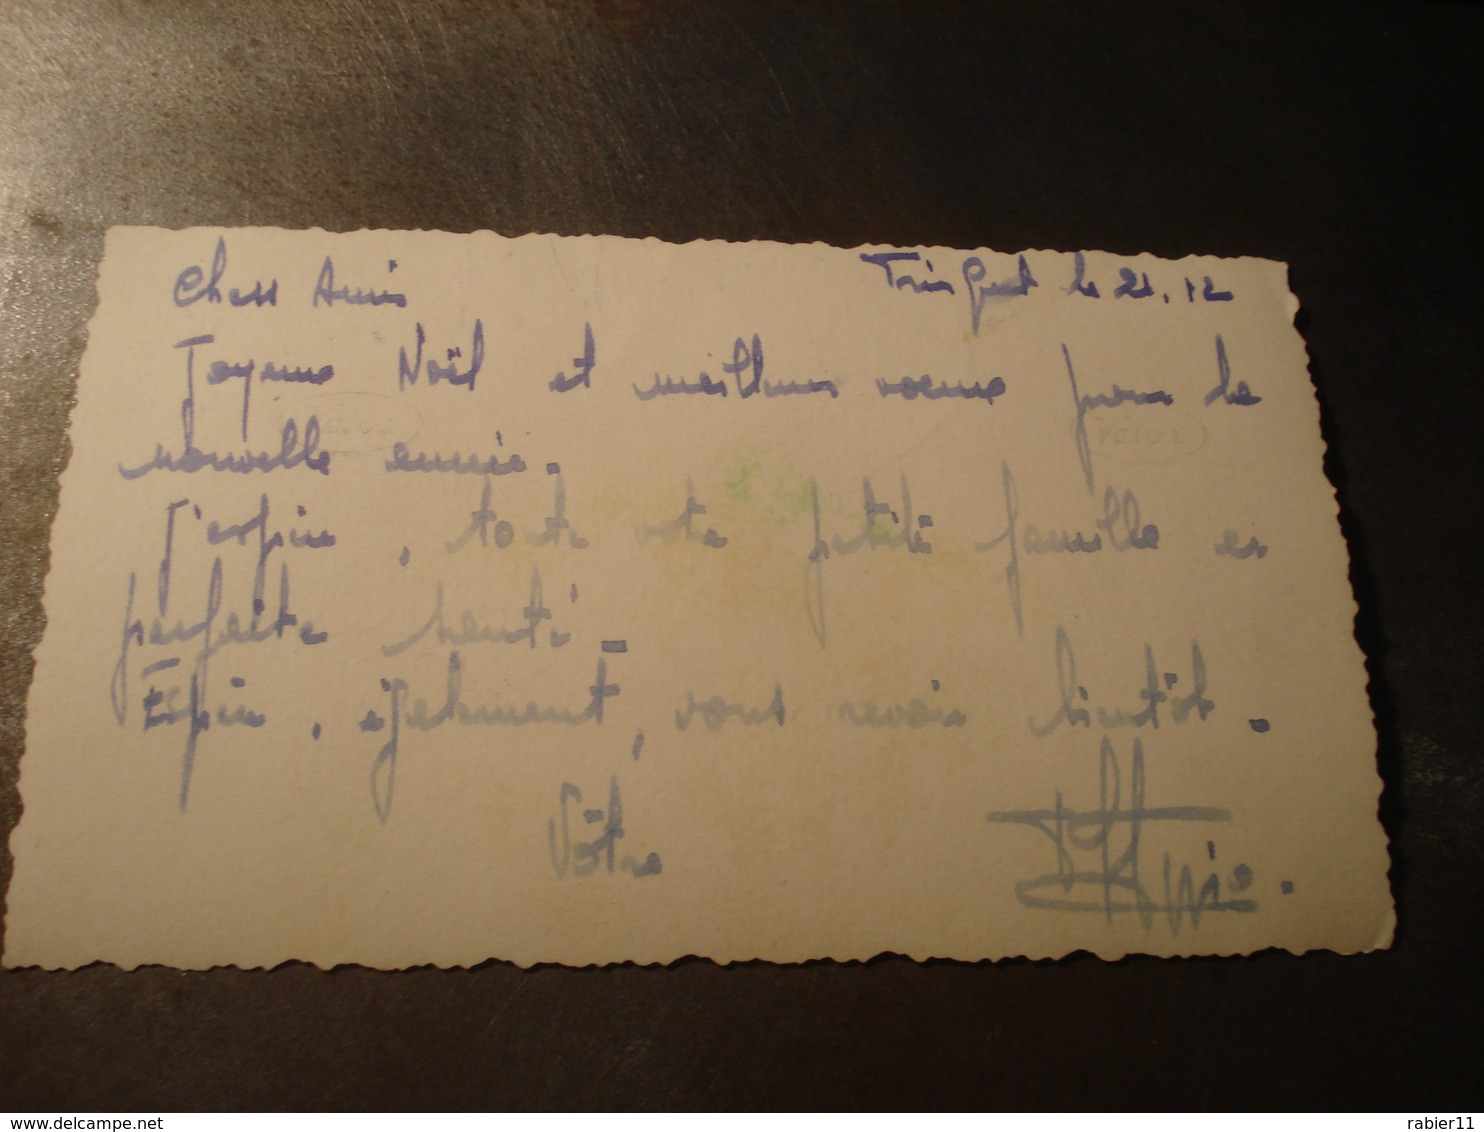 Chers Amis
le 21.12
Joyeux Noël et meilleurs voeux pour la
nouvelle année.
J'espère, toute votre petite famille en
parfaite santé -
Espère, également, vous revoir bientôt -
Vôtre
Velox
www.delcampe.net
rabier11